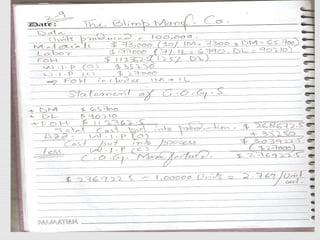 Date: 29
The Blimp Manf. Co.
Data
Units produced = 100,000.
Materials $ 73,000 (10% IM = 7300 & DM = 65700)
Labor $ 97000 (7% IL = 6790 DL = 90210)
FOH $ 112362.5 (125% DL)
W.I.P (O) $ 35250
W.I.P (C) $ 27000
FOH includes IM + IL
Statement of C.O.G.S
+ DM $ 65700
+ DL $ 90210
+ FOH $ 112362.5
Total Cost put into production. $ 268672.5
Add: W.I.P (O) + 35250
Cost put into process $ 303922.5
less W.I.P (C) ($ 27000)
C.O.G. Manufactured $ 276922.5
$ 276922.5 ÷ 1,00000 Units = 2.769/Unit cost.